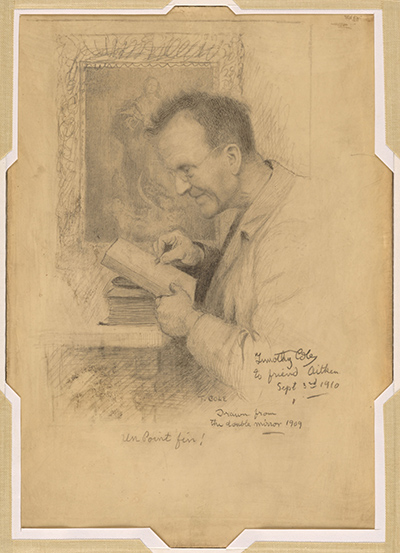 Timothy Cole
to friend Aitken
Sept 3rd 1910
T. COLE
Drawn from
the double mirror 1909
Un Point fin!